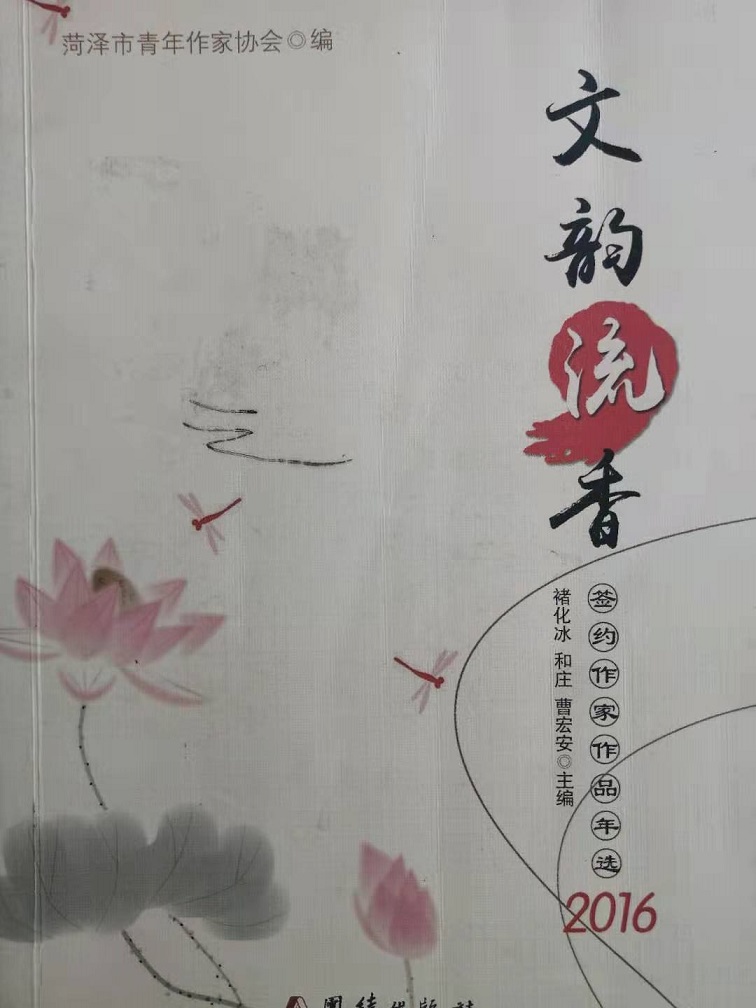 菏泽市青年作家协会◎编
文韵流香
签约作家作品年选
2016
褚化冰 和庄 曹宏安◎主编
团结出版社